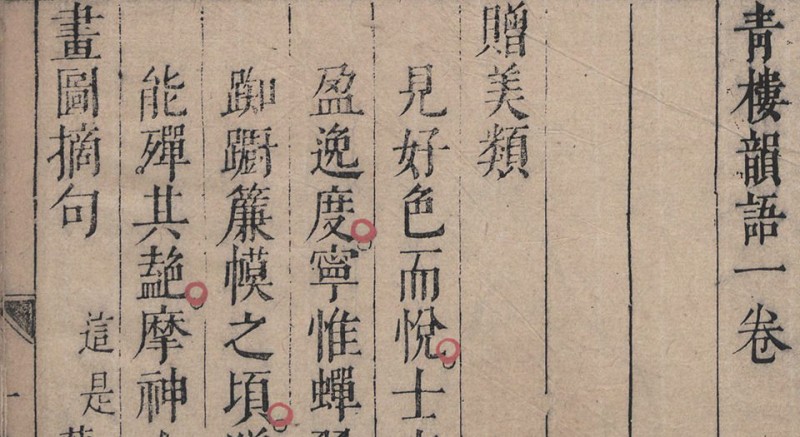 青樓韻語一卷
贈美類
見好色而悅。士
盈逸度。寧惟蟬
踟躕簾幙之頃。
能殫其艷。摩神
畫圖摘句 這是